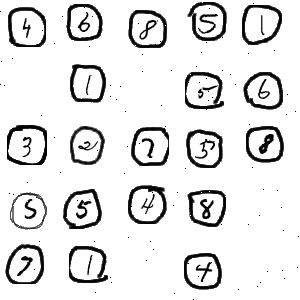 4 6 8 5 1
1 5 6
3 2 7 5 8
5 5 4 8
7 1 4